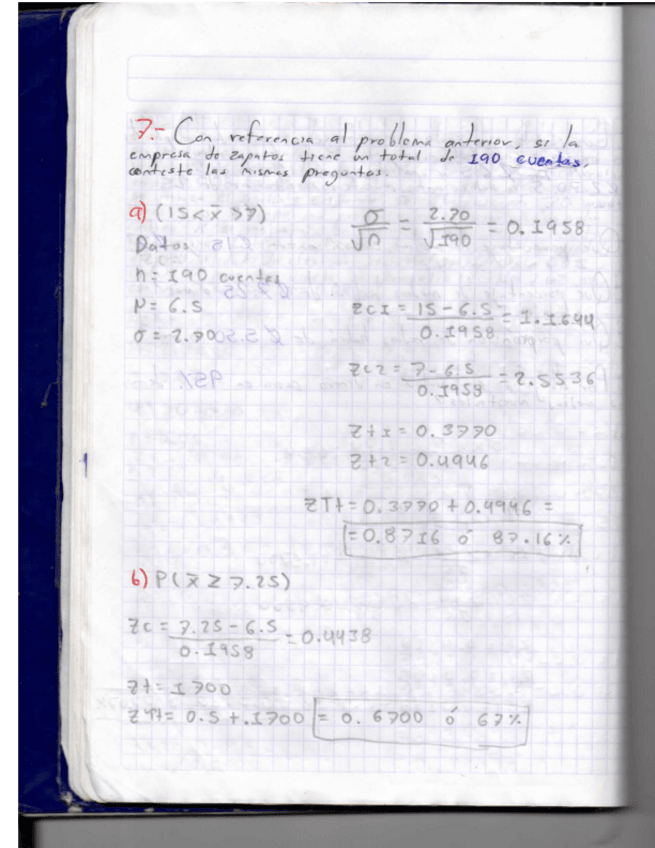 7.- Con referencia al problema anterior, si la
empresa de zapatos tiene un total de 190 cuentas,
conteste las mismas preguntas.
a) (15 < x̄ > 7)
σ/√n = 2.70/√190 = 0.1958
Datos
n = 190 cuentas
μ = 6.5
σ = 2.70
Zc1 = 15 - 6.5/0.1958 = 1.1644
Zc2 = 7 - 6.5/0.1958 = 2.5536
Zt1 = 0.3770
Zt2 = 0.4946
ZTt = 0.3770 + 0.4946 =
= 0.8716 ó 87.16%
b) P(x̄ ≥ 7.25)
Zc = 7.25 - 6.5/0.1958 = 0.4438
Zt = 1700
ZTt = 0.5 + .1700 = 0.6700 ó 67%